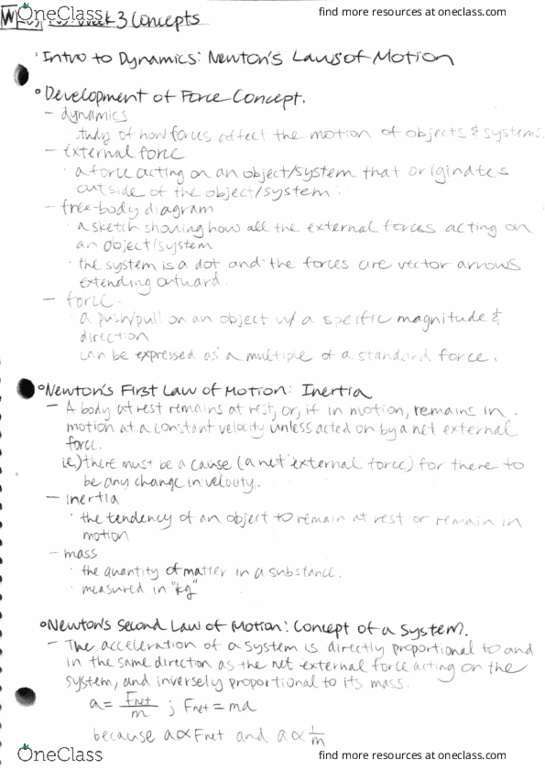 OneClass
find more resources at oneclass.com
Week 3 Concepts
Intro to Dynamics: Newton's Laws of Motion
Development of Force Concept.
- dynamics
study of how forces affect the motion of objects & systems.
- external force
a force acting on an object/system that originates
outside of the object/system.
- free-body diagram
a sketch showing how all the external forces acting on
an object/system
the system is a dot and the forces are vector arrows
extending outward.
- force.
a push/pull on an object w/ a specific magnitude &
direction
can be expressed as a multiple of a standard force.
Newton's First Law of Motion: Inertia
- A body at rest remains at rest, or, if in motion, remains in
motion at a constant velocity unless acted on by a net external
force.
i.e.) there must be a cause (a net external force) for there to
be any change in velocity.
- inertia
the tendency of an object to remain at rest or remain in
motion
- mass
the quantity of matter in a substance.
measured in "kg"
Newton's Second Law of Motion: Concept of a System.
- The acceleration of a system is directly proportional to and
in the same direction as the net external force acting on the
system, and inversely proportional to its mass.
a = Fnet/m ; Fnet = ma
because a ∝ Fnet and a ∝ 1/m
OneClass
find more resources at oneclass.com